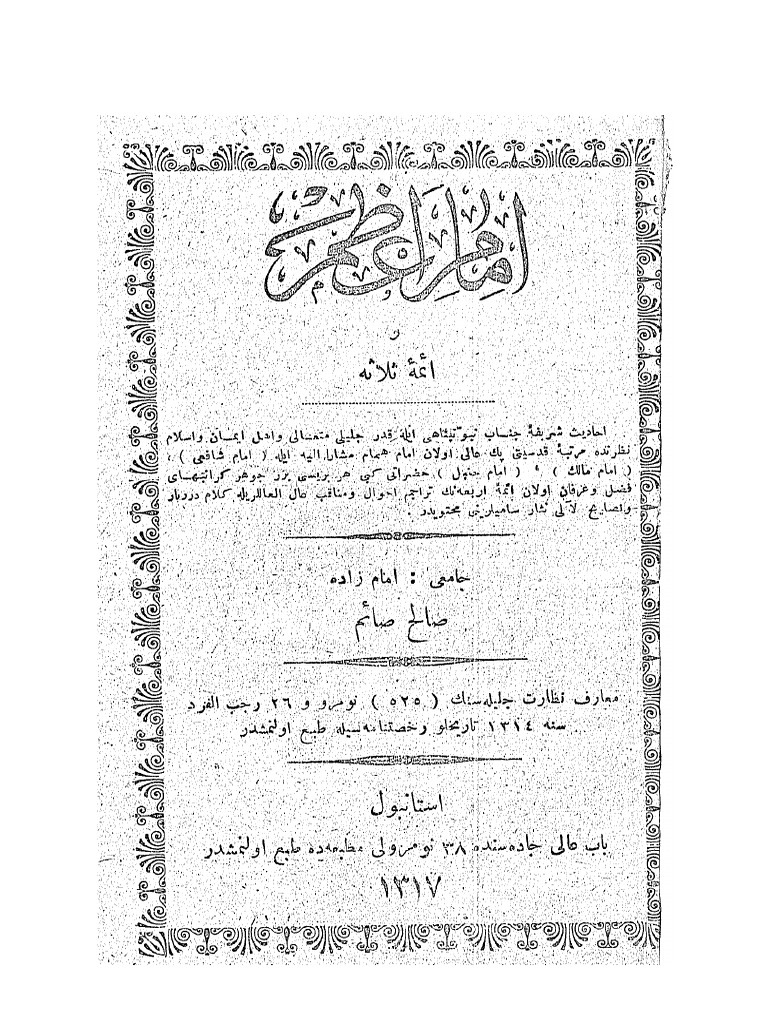 امام اعظم
و
ائمهٔ ثلاثه
احاديث شريفهٔ جناب نبوتپناهى ايله قدر جليلى متعالى واهل ايمان واسلام
نظرنده مرتبهٔ قدسيتى پك عالى اولان امام همام مشار اليه ايله ( امام شافعى ) ،
( امام مالك ) ، ( امام حنبل ) حضراتى كبى هر بريسى برر جوهر كرانبهاى
فضل وعرفان اولان ائمهٔ اربعه‌نك تراجم احوال ومناقب عال العاللريله كلام دردبار
ونصايح لآلى نثار ساميلرينى محتويدر .
جامعى : امام زاده
صالح صائم
معارف نظارت جليله‌سنك ( ٥٢٥ ) نومرو و ٢٦ رجب الفرد
سنه ١٣١٤ تاريخلو رخصتنامه‌سيله طبع اولنمشدر
استانبول
باب عالى جاده‌سنده ٣٨ نومرولى مطبعه‌ده طبع اولنمشدر
١٣١٧